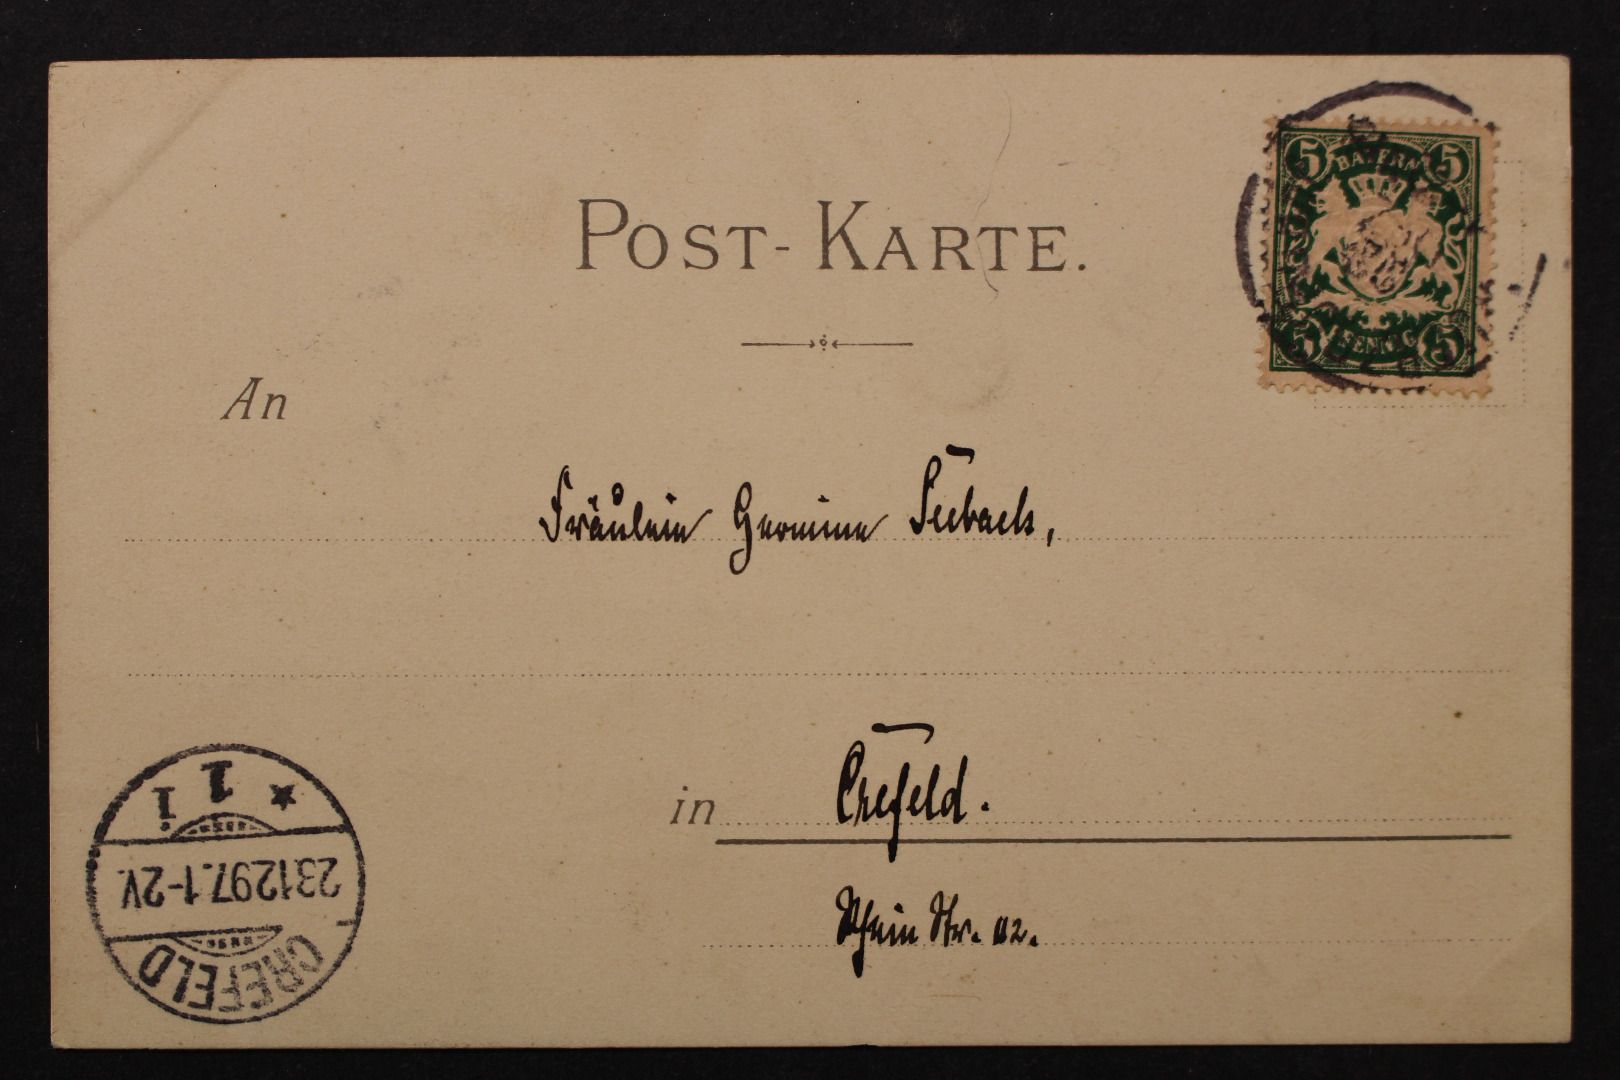 POST-KARTE.
BAYERN
5 5
5 PFENNIG 5
An
Fräulein Seebach,
in Crefeld.
Rhein Str.
* 1 i
23.12.97.1-2V.
CREFELD